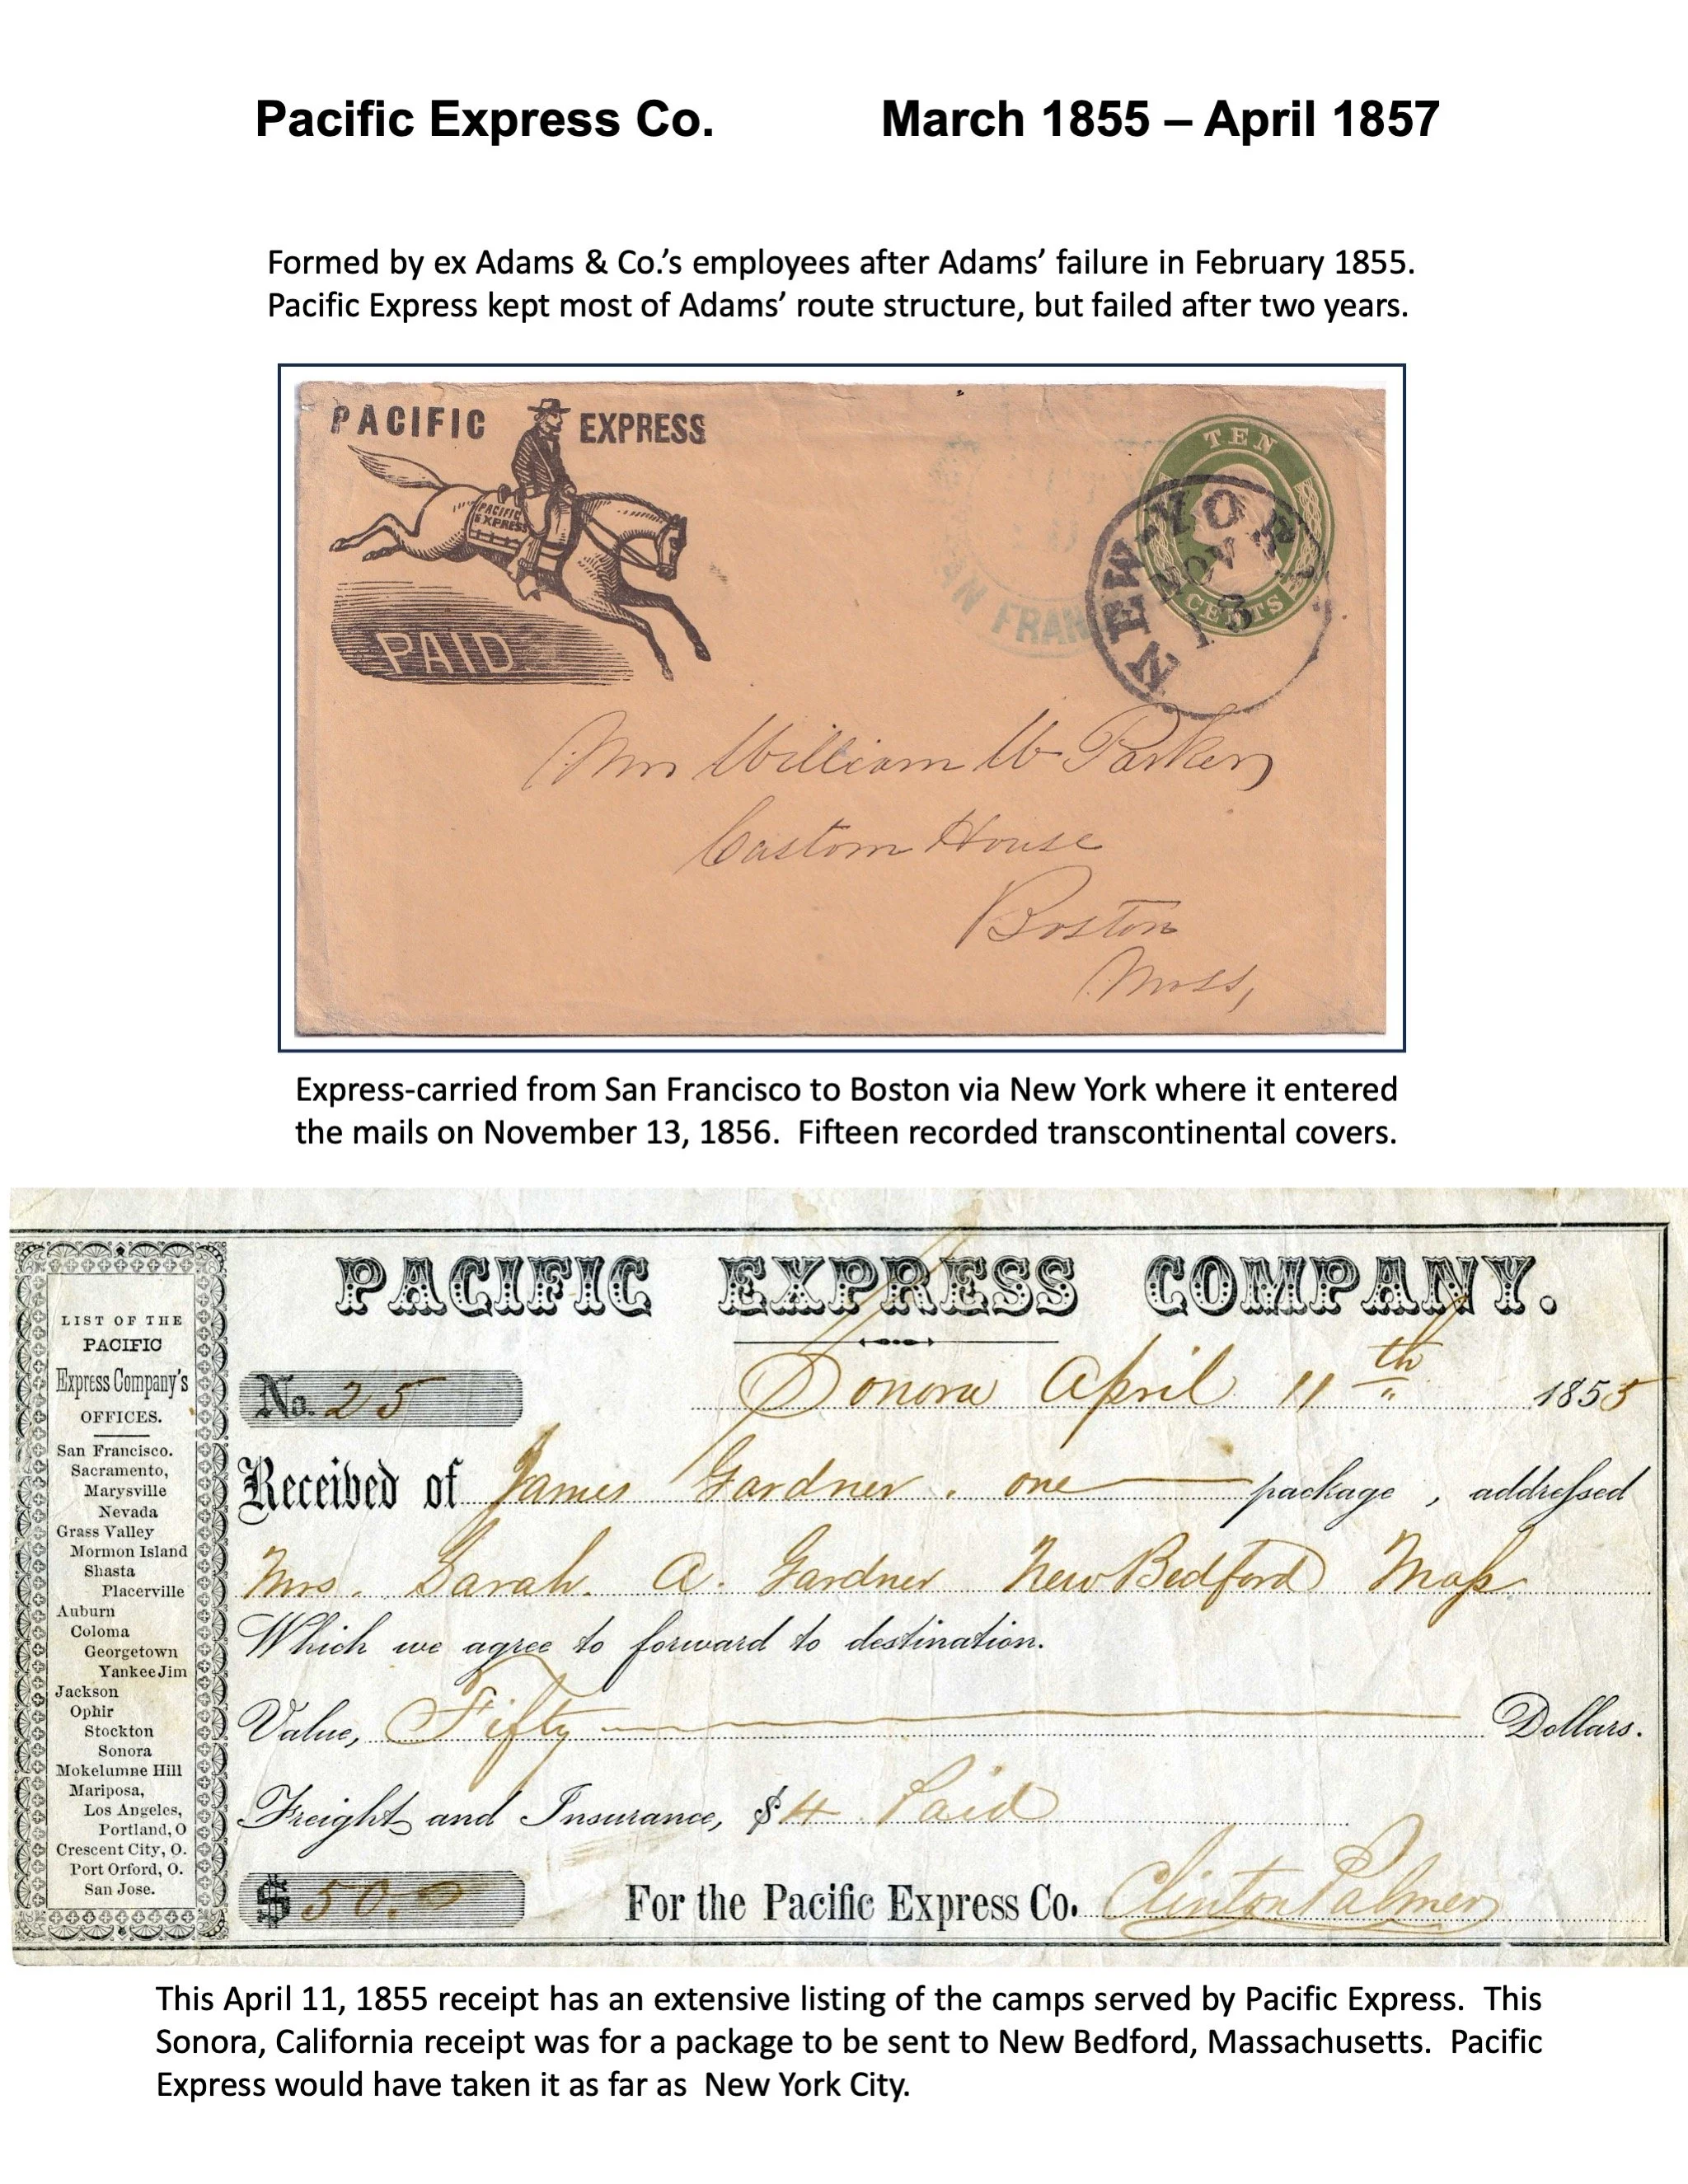 Pacific Express Co. March 1855 – April 1857
Formed by ex Adams & Co.'s employees after Adams' failure in February 1855.
Pacific Express kept most of Adams' route structure, but failed after two years.
PACIFIC EXPRESS
PACIFIC
EXPRESS
PAID
TEN
CENTS
NEW-YORK
NOV
13
AN FRAN
Mr William W Parker
Custom House
Boston
Mass,
Express-carried from San Francisco to Boston via New York where it entered
the mails on November 13, 1856. Fifteen recorded transcontinental covers.
LIST OF THE
PACIFIC
Express Company's
OFFICES.
San Francisco.
Sacramento,
Marysville
Nevada
Grass Valley
Mormon Island
Shasta
Placerville
Auburn
Coloma
Georgetown
Yankee Jim
Jackson
Ophir
Stockton
Sonora
Mokelumne Hill
Mariposa,
Los Angeles,
Portland, O
Crescent City, O.
Port Orford, O.
San Jose.
PACIFIC EXPRESS COMPANY.
No. 25 Sonora April 11th 1855
Received of James Gardner. one package, addressed
Mrs. Sarah. A. Gardner New Bedford Mass
Which we agree to forward to destination.
Value, Fifty Dollars.
Freight and Insurance, $4 Paid
$50.0 For the Pacific Express Co. Clinton Palmer
This April 11, 1855 receipt has an extensive listing of the camps served by Pacific Express. This
Sonora, California receipt was for a package to be sent to New Bedford, Massachusetts. Pacific
Express would have taken it as far as New York City.